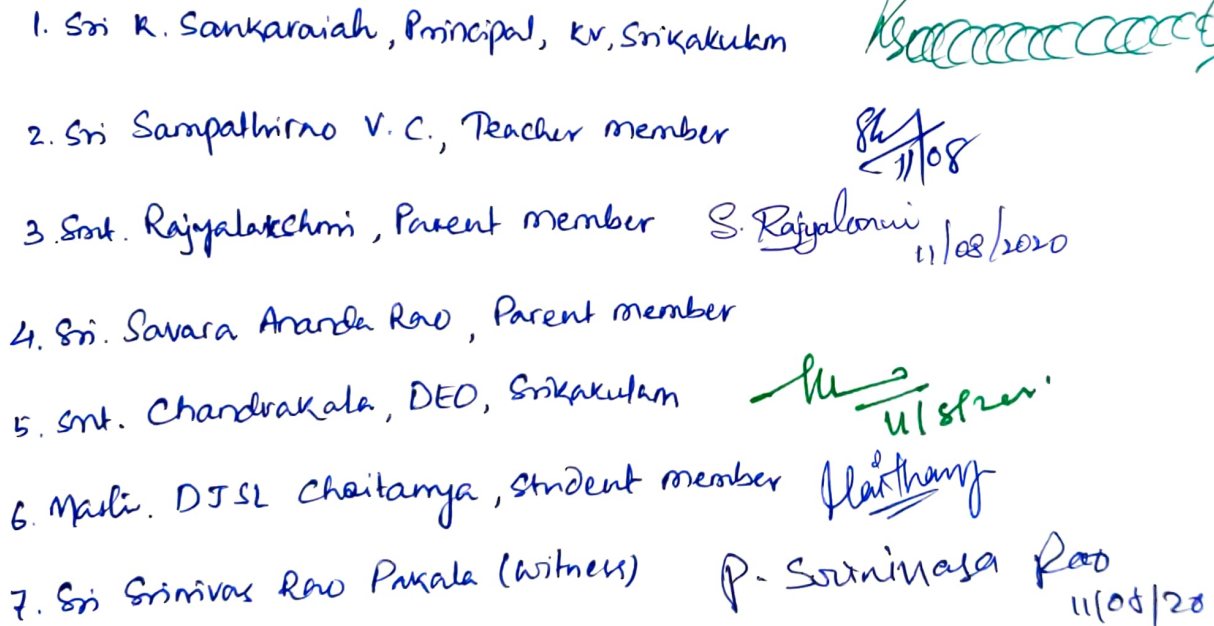 1. Sri R. Sankaraiah, Principal, KV, Srikakulam
2. Sri Sampathirao V. C., Teacher member 11/08
3. Smt. Rajyalakshmi, Parent member S. Rajyalaxmi 11/08/2020
4. Sri. Savara Ananda Rao, Parent member
5. Smt. Chandrakala, DEO, Srikakulam
6. DJSL Chaitanya, Student member
7. Sri Srinivas Rao Pakala (witness) P. Srinivasa Rao 11/08/20